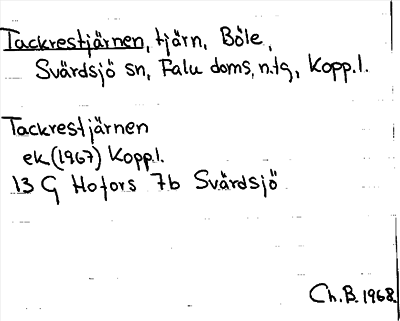 Tackrestjärnen, tjärn, Böle,
Svärdsjö sn, Falu doms. n.tg, Kopp.l.
Tackrestjärnen
ek. (1967) Kopp.l.
13 G Hofors 7b Svärdsjö
Ch.B. 1968